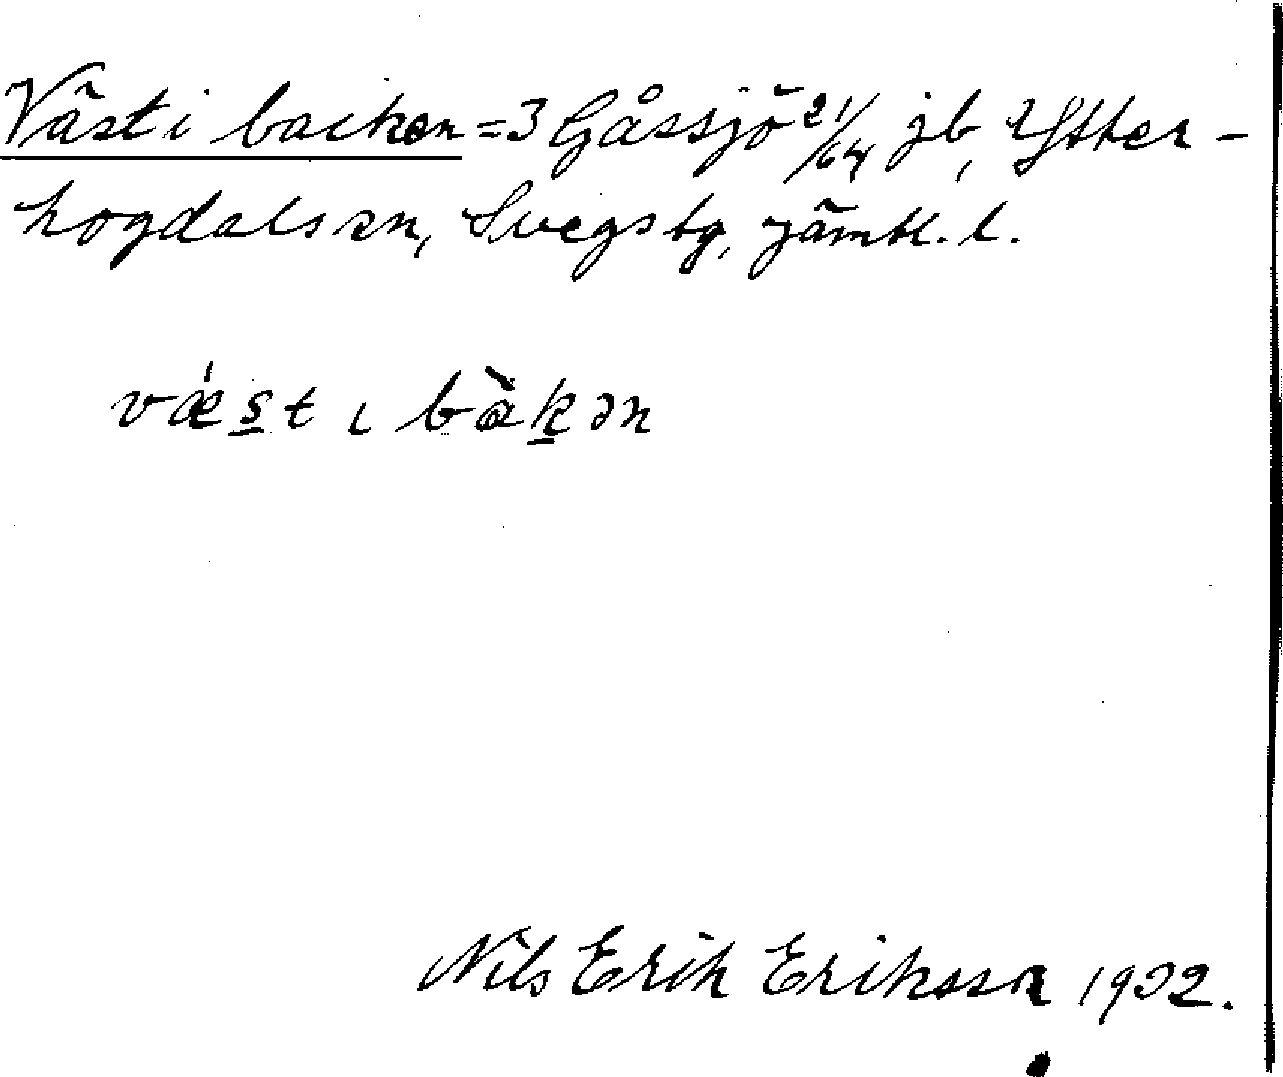 Väst i backen = 3 Gåssjö 21/64 jb, Ytter-
hogdals sn, Svegs tg, Jämtl. l.
vǽs̱t ɩ bàḵən
Nils Erik Eriksson 1932.